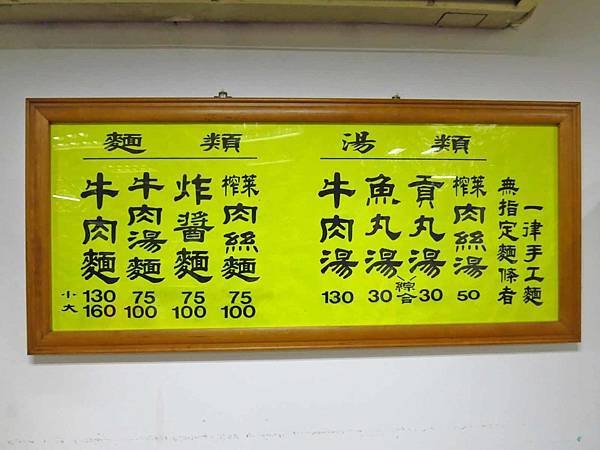 麵類
牛肉麵
牛肉湯麵
炸醬麵
榨菜肉絲麵
小 130 75 75 75
大 160 100 100 100
湯類
牛肉湯
魚丸湯
貢丸湯
榨菜肉絲湯
綜合
130 30 30 50
無指定麵條者
一律手工麵